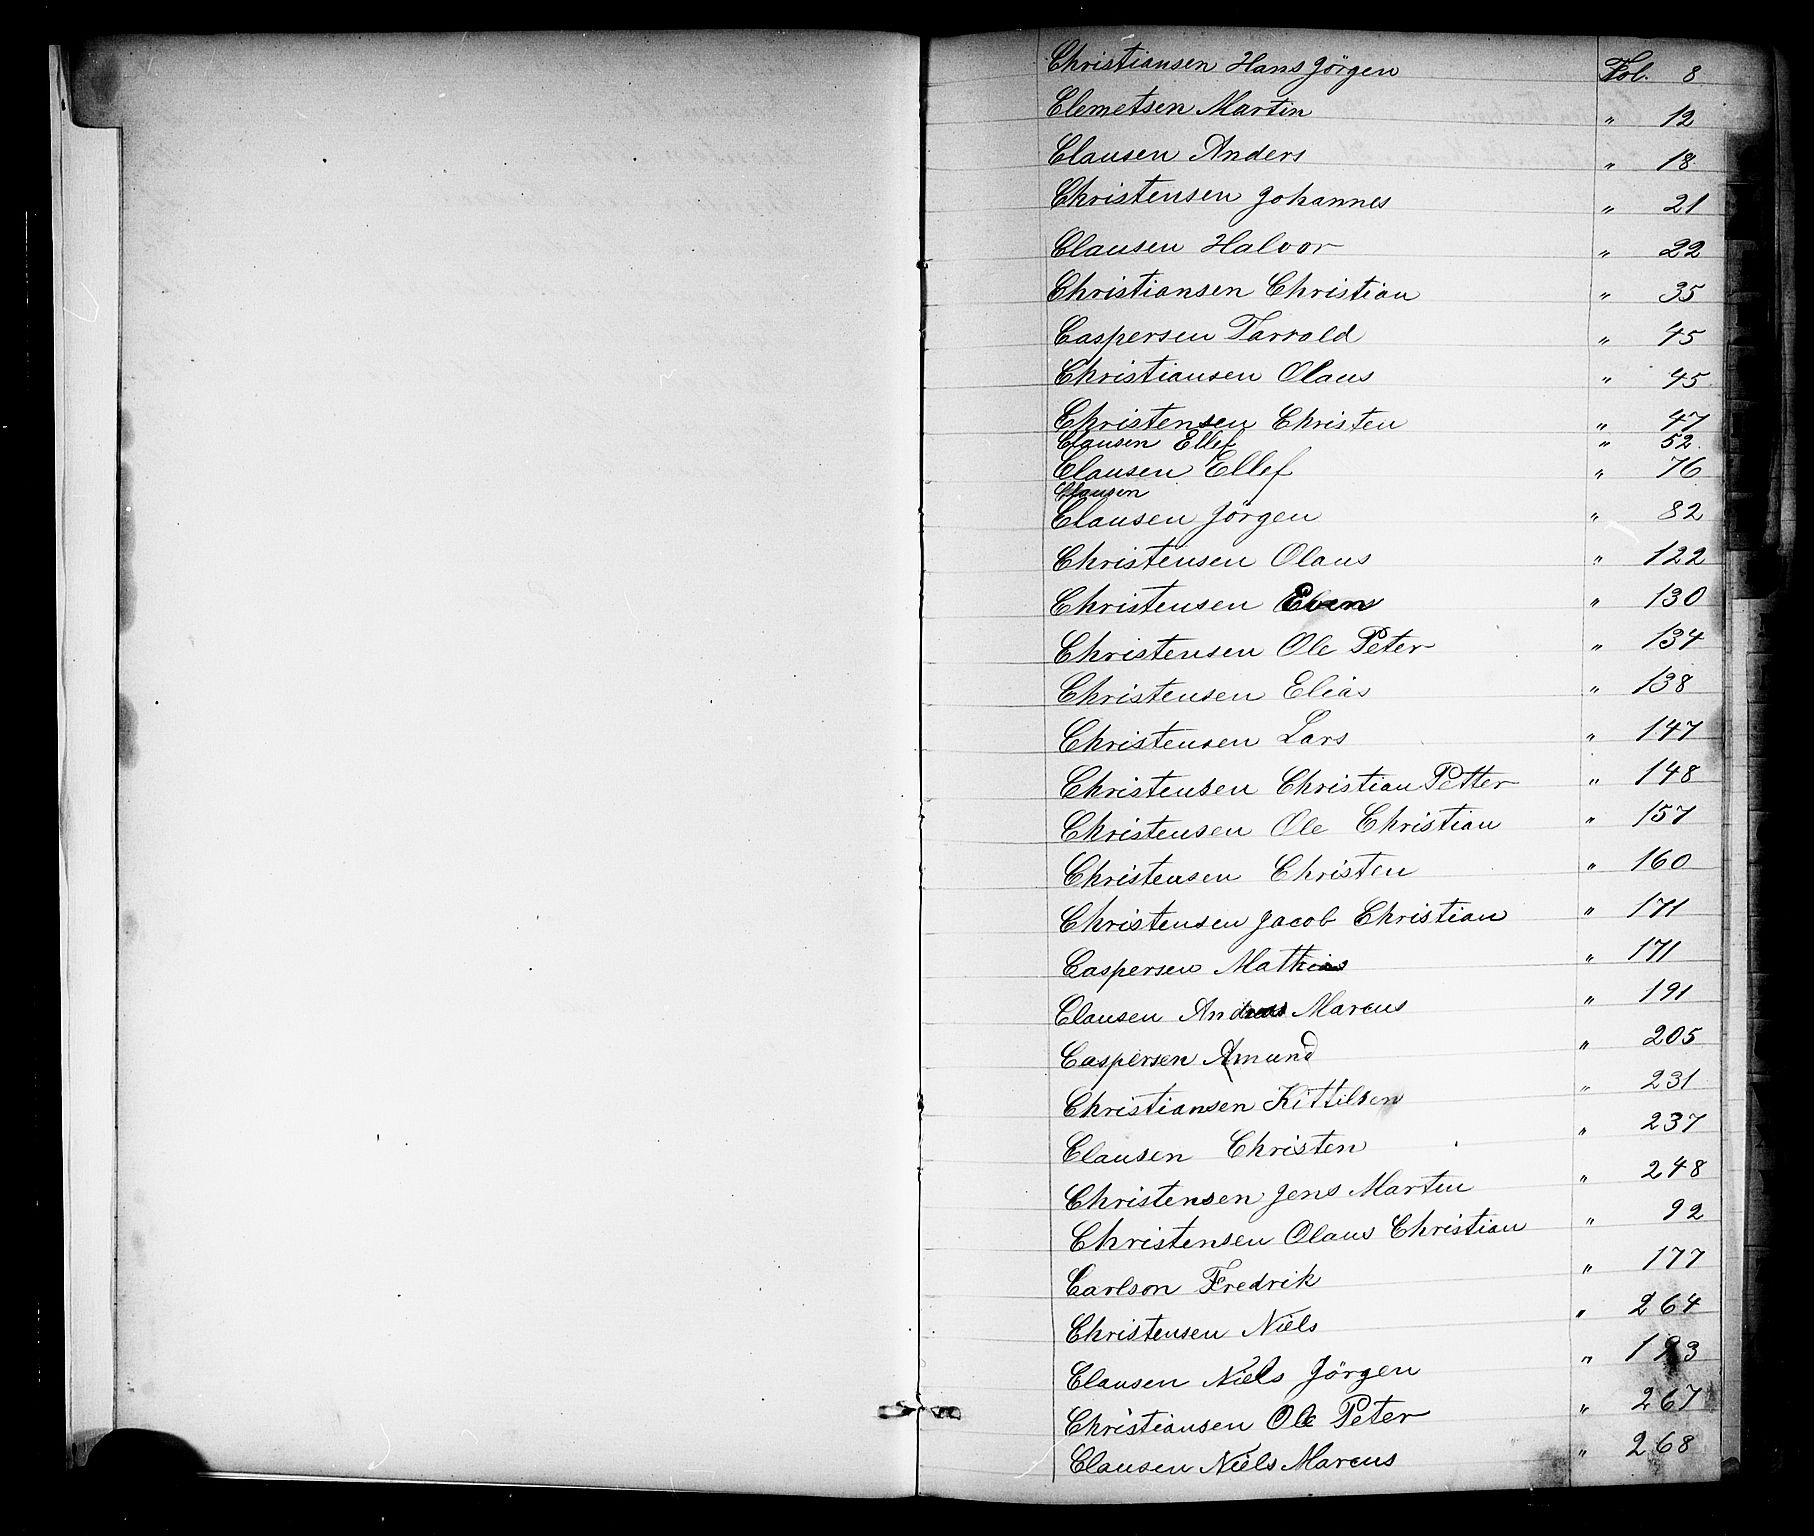 Christiansen Hans Jörgen Fol. 8
Clemetsen Martin " 12
Clausen Anders " 18
Christensen Johannes " 21
Clausen Halvor " 22
Christiansen Christian " 35
Caspersen Tarrald " 45
Christiansen Olaus " 45
Christensen Christen " 47
Clausen Ellef " 52
Clausen Ellef " 76
Clausen
Clausen Jörgen " 82
Christensen Olaus " 122
Christensen Even " 130
Christensen Ole Peter " 134
Christensen Elias " 138
Christensen Lars " 147
Christensen Christian Petter " 148
Christensen Ole Christian " 157
Christensen Christen " 160
Christensen Jacob Christian " 171
Caspersen Mathias " 171
Clausen Andreas Marcus " 191
Caspersen Amund " 205
Christiansen Kittilsen " 231
Clausen Christen " 237
Christensen Jens Marten " 248
Christensen Olaus Christian " 92
Carlson Fredrik " 177
Christensen Niels " 264
Clausen Niels Jörgen " 193
Christiansen Ole Peter " 267
Clausen Niels Marcus " 268